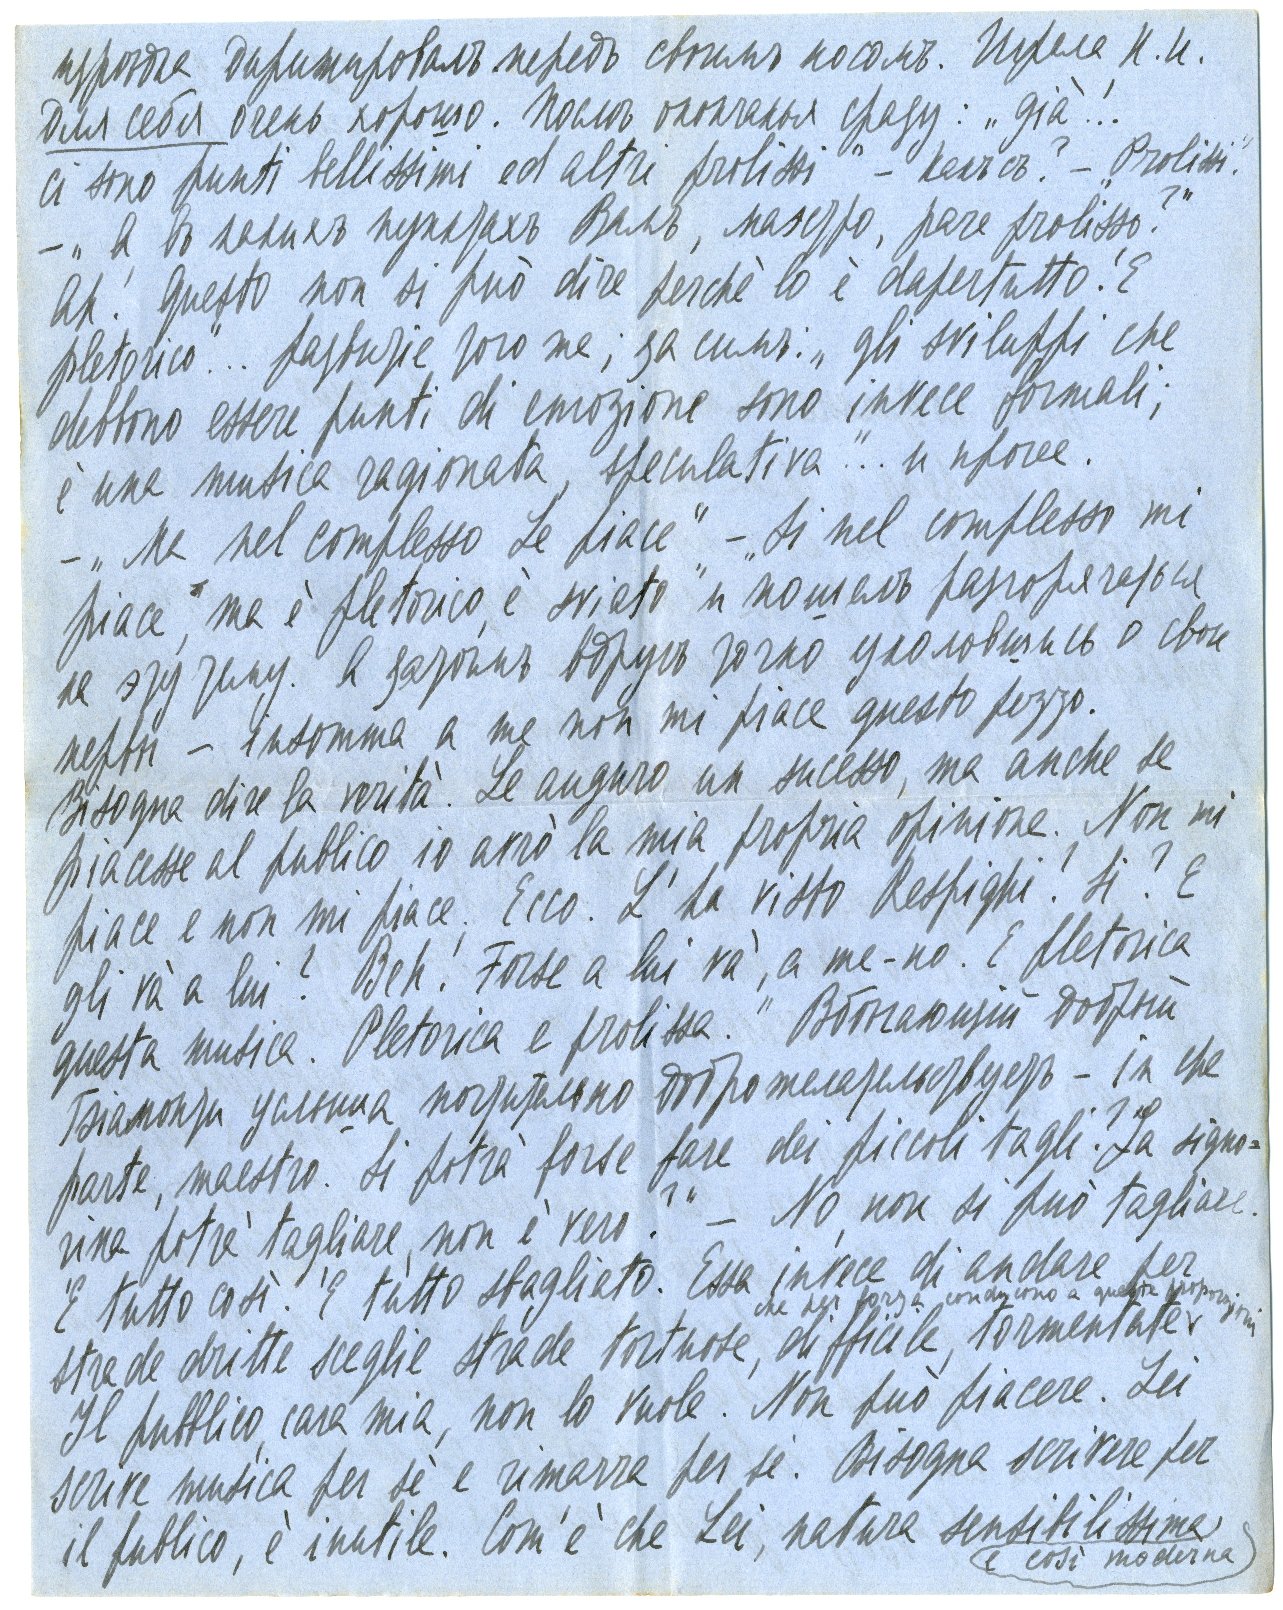 дирижировалъ передъ своимъ носомъ. Играла Н. И.
для себя очень хорошо. Послѣ окончанья сразу: „già!..
ci sono punti bellissimi ed altri prolissi" – Какъ съ? – „Prolissi."
– „А въ какихъ пунктахъ Вамъ, маэстро, pare prolisso?"
Ah! Questo non si può dire perchè lo è dapertutto! È
pletorico"... развитіе того же; за симъ: „gli sviluppi che
debbono essere punti di emozione sono invece formali;
è una musica ragionata, speculativa"... и прочее.
– „Ma nel complesso Le piace" – „Si nel complesso mi
piace, ma è pletorico, è sviato" и пошелъ разгорячаться
на эту тему. А затѣмъ вдругъ точно уколовшись о свои
перья – insomma a me non mi piace questo pezzo.
Bisogna dire la verità. Le auguro un sucesso, ma anche se
piacesse al publico io avrò la mia propria opinione. Non mi
piace e non mi piace. Ecco. L'ha visto Respighi? Si? E
gli và a lui? Beh! Forse a lui và, a me-no. È pletorica
questa musica. Pletorica e prolissa." добрый
Біамонти услыша почтительно доброжелательствуетъ – in che
parte, maestro. Si potrà forse fare dei piccoli tagli? La signo=
rina potrà tagliare, non è vero?" – No, non si può tagliare.
È tutto così. È tutto sbagliato. Essa invece di andare per
che per forza conducono a queste proporzioni
strade dritte sceglie strade tortuose, difficile, tormentate
Il pubblico, cara mia, non lo vuole. Non può piacere. Lei
scrive musica per sè e rimarra per sè. Bisogna scrivere per
il publico, è inutile. Com'è che Lei, natura sensibilissima
e così moderna